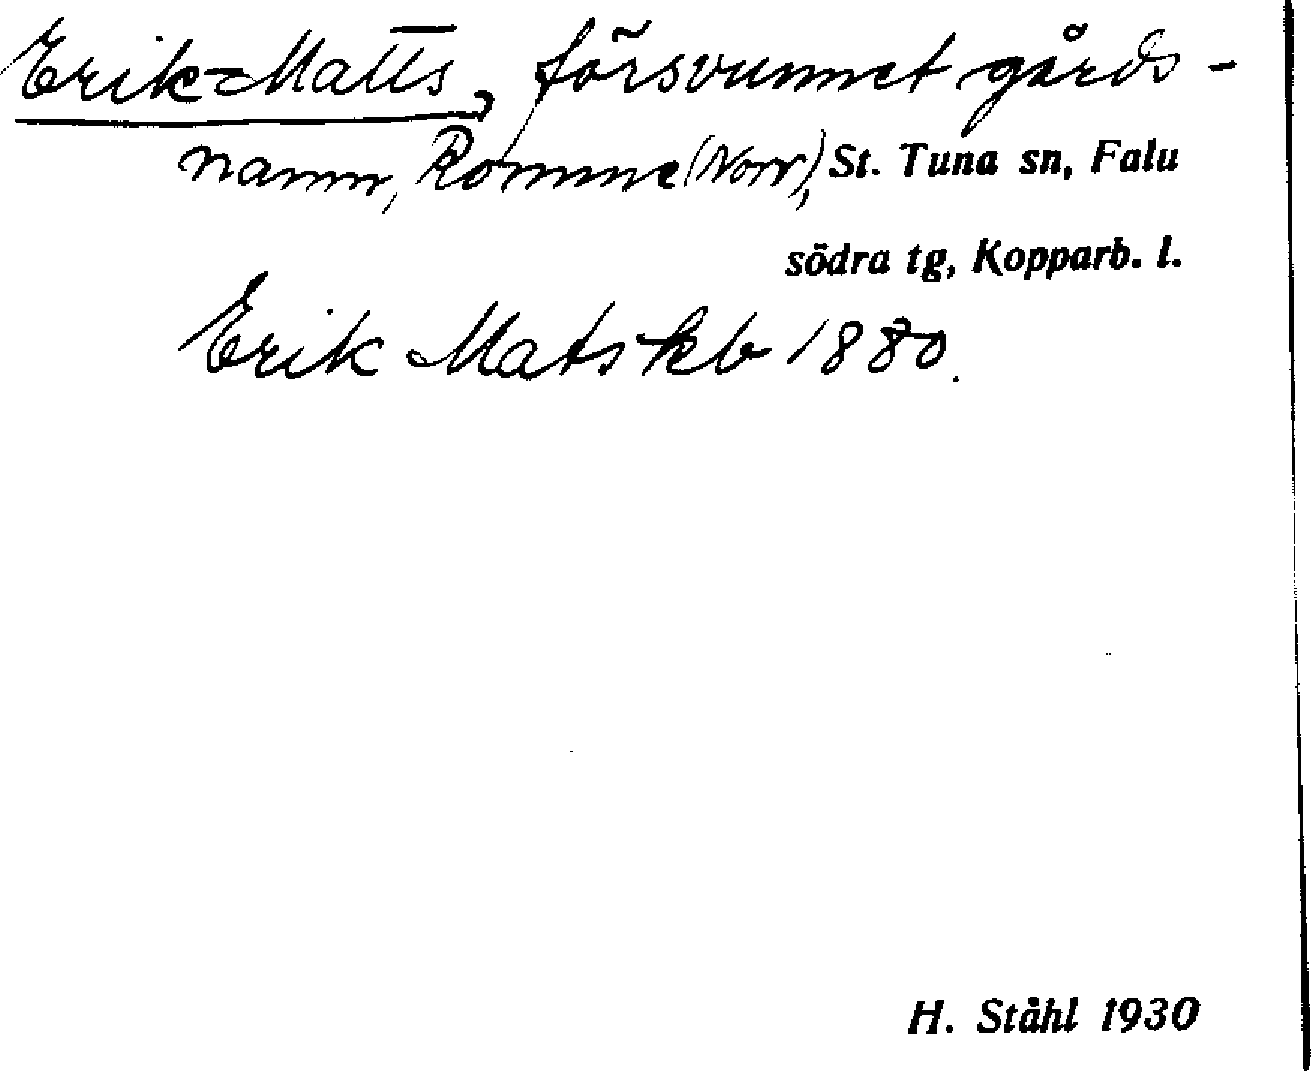 Erik-Matts, försvunnet gårds-
namn, Romme (Norr), St. Tuna sn, Falu
södra tg, Kopparb. l.
Erik Mats kb 1880.
H. Ståhl 1930